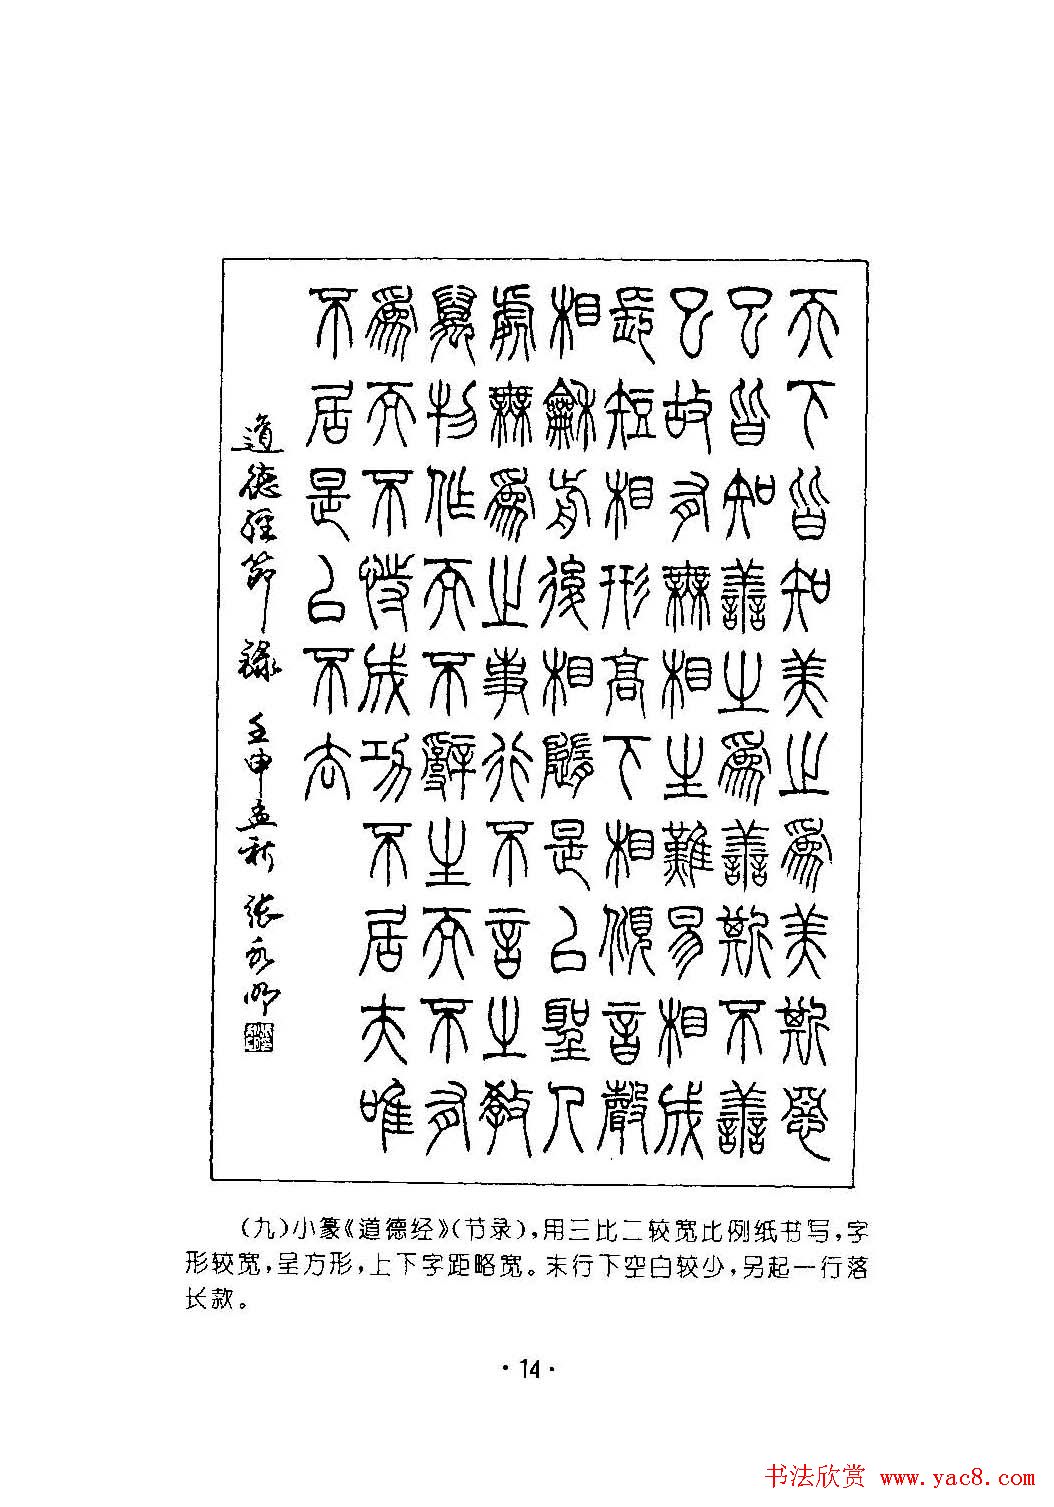 天下皆知美之為美斯惡
已皆知善之為善斯不善
已故有無相生難易相成
長短相形高下相傾音聲
相龢前後相隨是以聖人
處無為之事行不言之教
萬物作而不辭生而不有
為而不恃成功不居夫唯
不居是以不去
道德經節錄 壬申孟秋 張永明
(九)小篆《道德经》(节录),用三比二较宽比例纸书写,字
形较宽,呈方形,上下字距略宽。末行下空白较少,另起一行落
长款。
·14·
书法欣赏 www.yac8.com